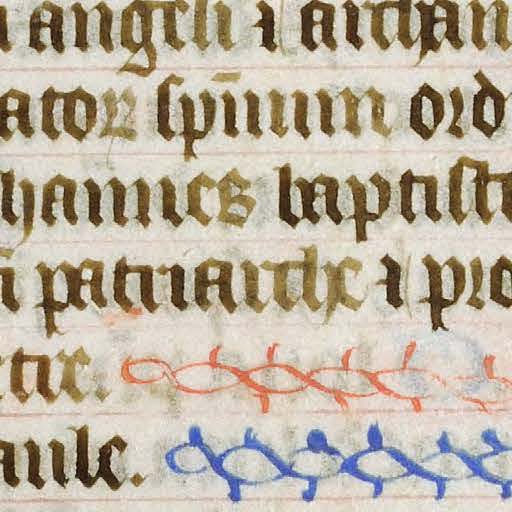 angeli ⁊ archan
ator sp̄iuum ord
hannes baptiste
patriarche ⁊ pro
ete.
aule.